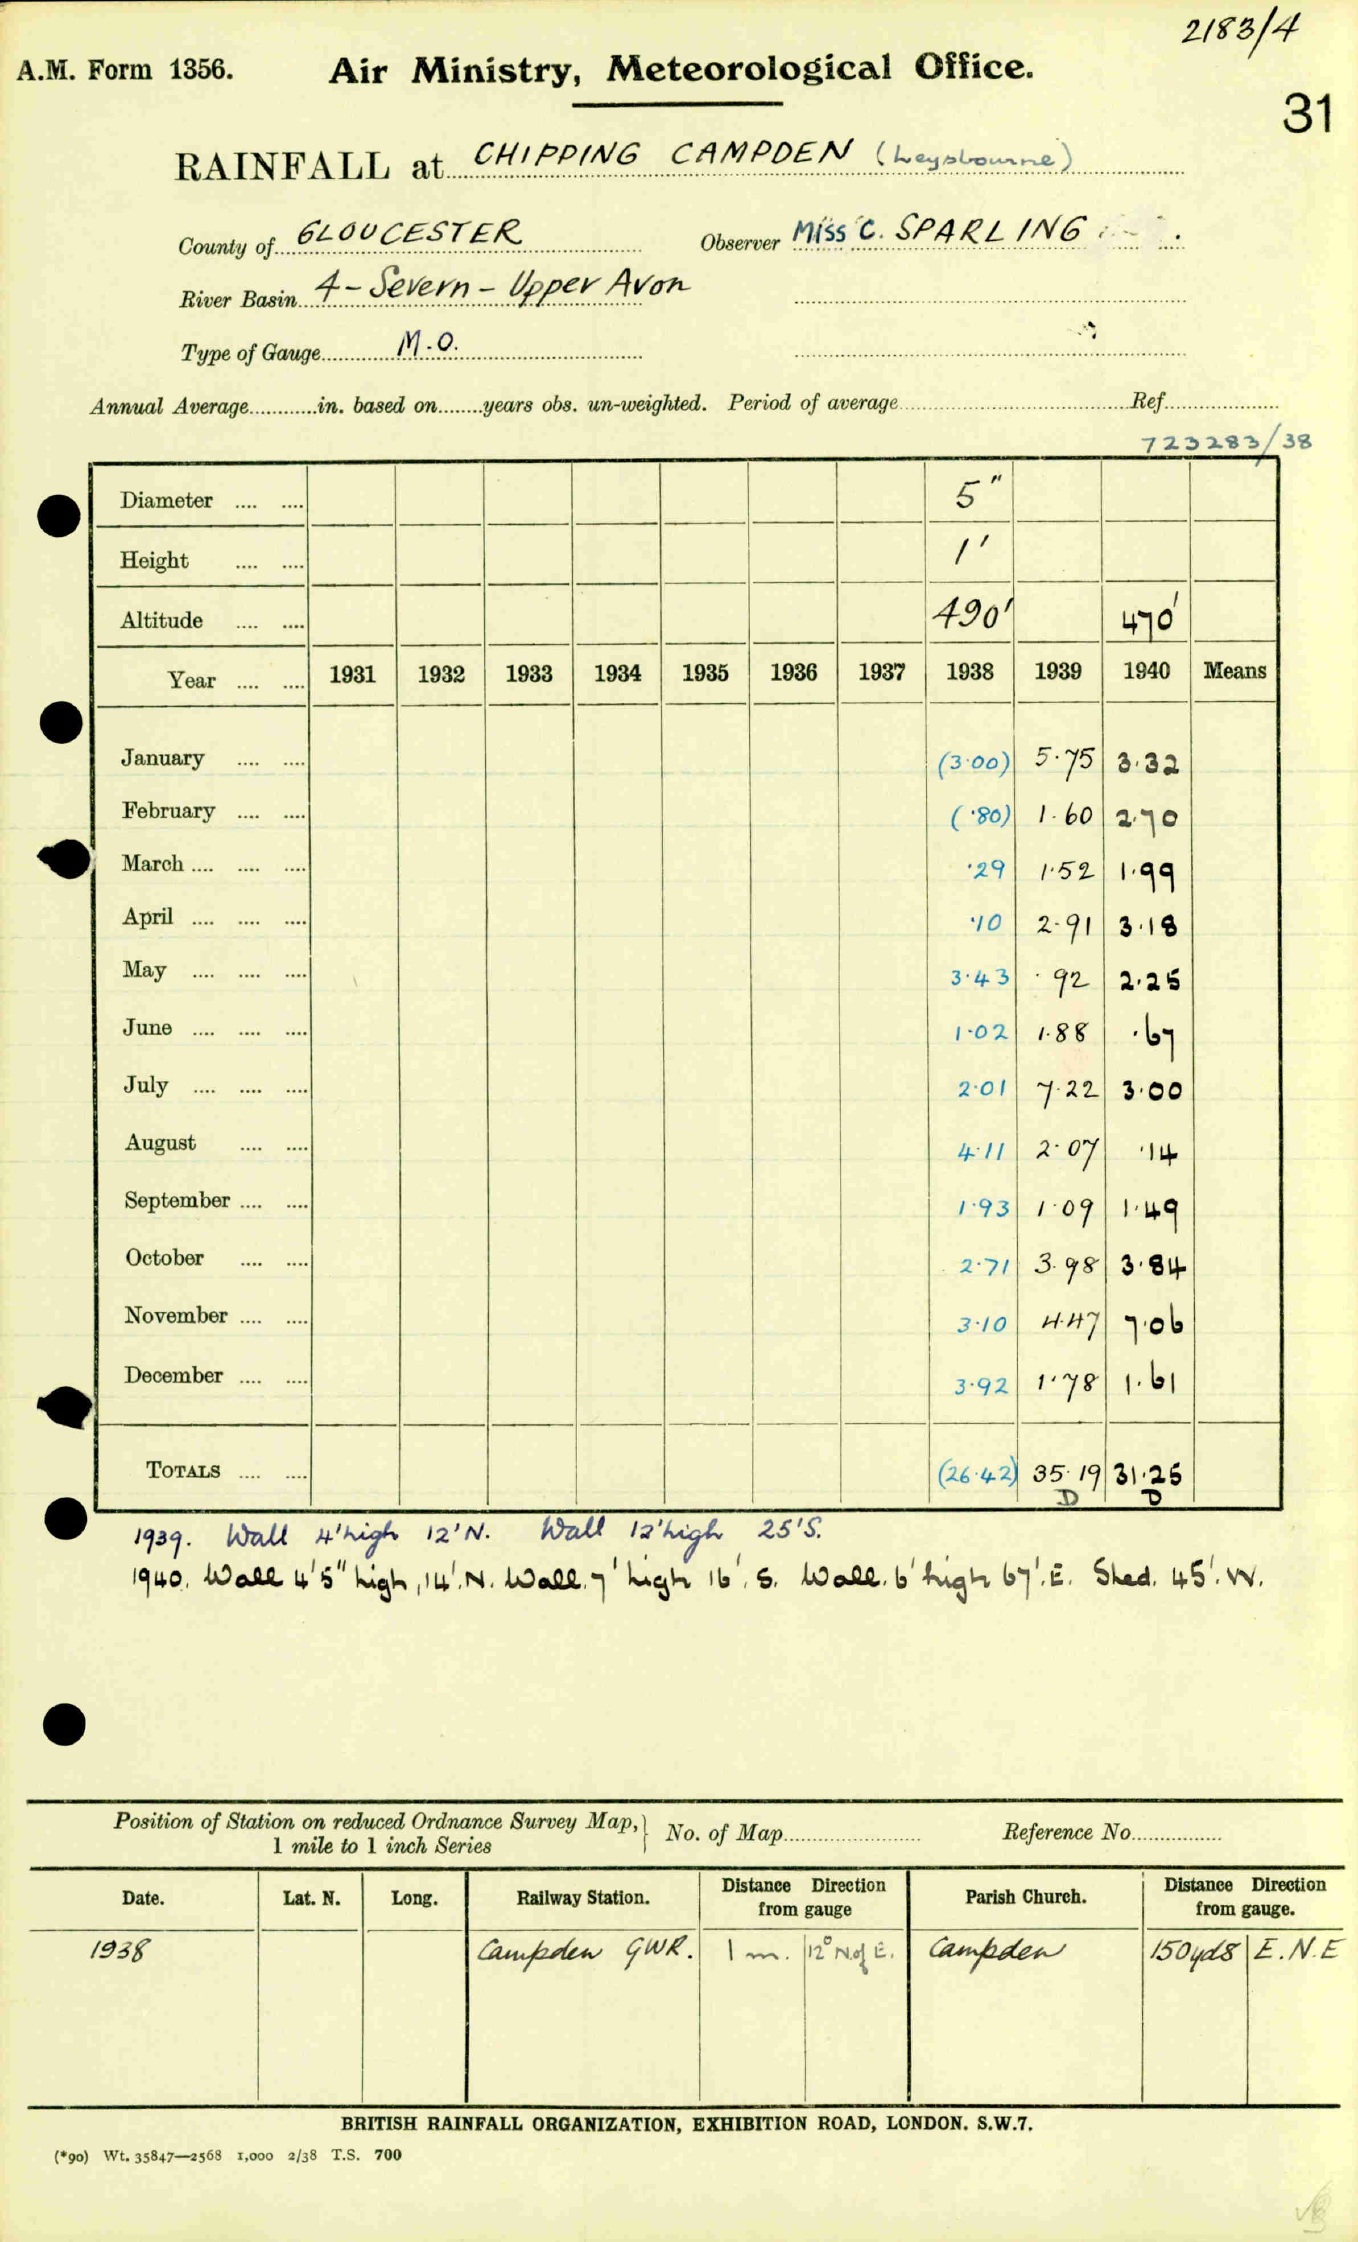 2183/4
A.M. Form 1356. Air Ministry, Meteorological Office.
31
RAINFALL at CHIPPING CAMPDEN (Leysbourne)
County of GLOUCESTER Observer Miss C. SPARLING
River Basin 4 - Severn - Upper Avon
Type of Gauge M.O.
Annual Average............in. based on........years obs. un-weighted. Period of average........Ref........
723283/38
Diameter .... .... 5"
Height .... .... 1'
Altitude .... .... 490' 470'
Year .... .... 1931 1932 1933 1934 1935 1936 1937 1938 1939 1940 Means
January .... .... (3·00) 5·75 3·32
February .... .... (·80) 1·60 2·70
March .... .... .... ·29 1·52 1·99
April .... .... .... ·10 2·91 3·18
May .... .... .... 3·43 ·92 2·25
June .... .... .... 1·02 1·88 ·67
July .... .... .... 2·01 7·22 3·00
August .... .... 4·11 2·07 ·14
September .... .... 1·93 1·09 1·49
October .... .... 2·71 3·98 3·84
November .... .... 3·10 4·47 7·06
December .... .... 3·92 1·78 1·61
TOTALS .... .... (26·42) 35·19 31·25
D D
1939. Wall 4' high 12' N. Wall 12' high 25' S.
1940. Wall 4'5" high, 14'. N. Wall. 7' high 16'. S. Wall. 6' high 67'. E. Shed. 45'. W.
Position of Station on reduced Ordnance Survey Map, } No. of Map........ Reference No........
1 mile to 1 inch Series
Date. Lat. N. Long. Railway Station. Distance Direction from gauge Parish Church. Distance Direction from gauge.
1938 Campden GWR. 1 m. 12° N. of E. Campden 150yds E.N.E
BRITISH RAINFALL ORGANIZATION, EXHIBITION ROAD, LONDON. S.W.7.
(*90) Wt. 35847—2568 1,000 2/38 T.S. 700